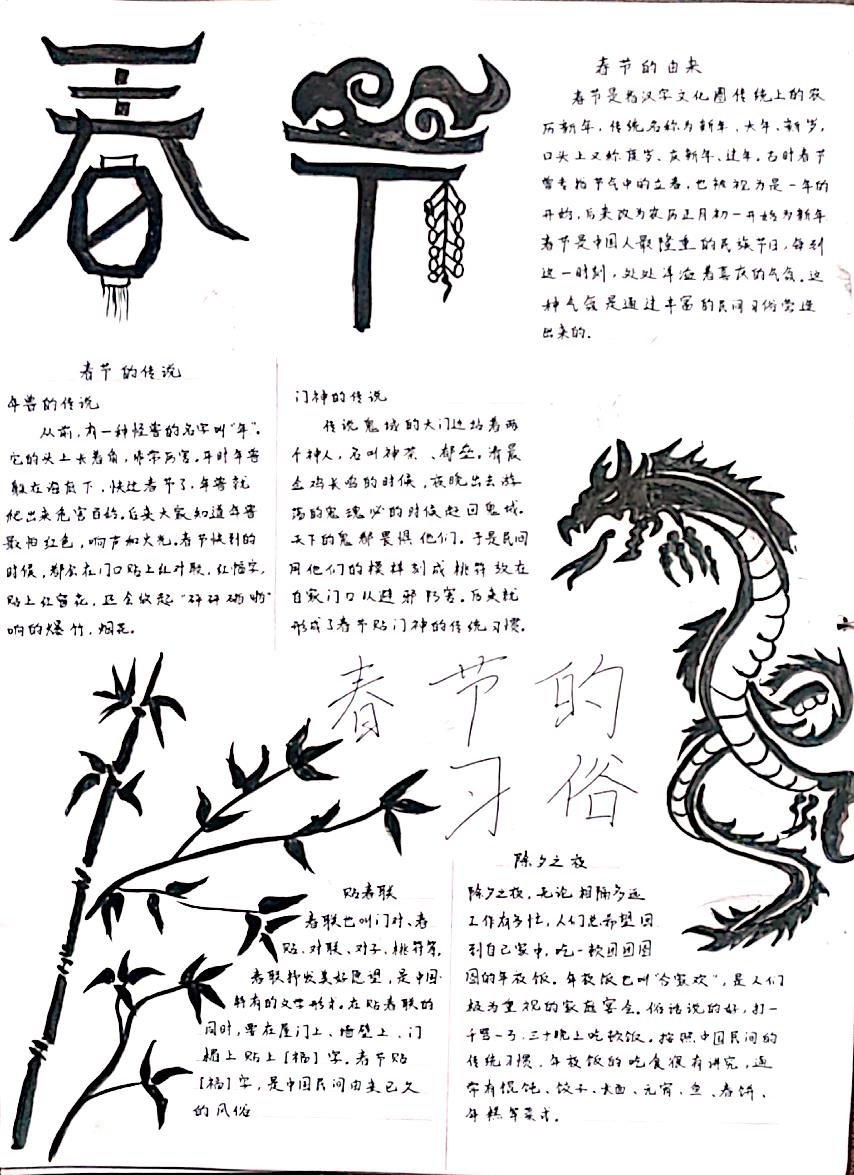 春节
春节的由来
春节是指汉字文化圈传统上的农
历新年，传统名称为新年、大年、新岁，
口头上又称度岁、庆新年、过年。古时春节
曾专指节气中的立春，也被视为是一年的
开始，后来改为农历正月初一开始为新年
春节是中国人最隆重的民族节日，每到
这一时刻，处处洋溢着喜庆的气氛。这
种气氛是通过丰富的民间习俗营造
出来的。
春节的传说
年兽的传说
从前，有一种怪兽的名字叫"年"。
它的头上长着角，非常厉害。平时年兽
躲在海底下，快过春节了，年兽就
爬出来危害百姓。后来大家知道年兽
最怕红色，响声和火光。春节快到的
时候，都会在门口贴上红对联，红福字，
贴上红窗花，还会放起"砰砰啪啪"
响的爆竹，烟花。
门神的传说
传说鬼域的大门边站着两
个神人，名叫神荼、郁垒。清晨
金鸡长鸣的时候，夜晚出去游
荡的鬼魂必的时候赶回鬼域。
天下的鬼都畏惧他们。于是民间
用他们的模样刻成桃符放在
自家门口以避邪防害。后来就
形成了春节贴门神的传统习惯。
春节的
习俗
贴春联
春联也叫门对、春
贴、对联、对子、桃符等，
春联抒发美好愿望，是中国
特有的文学形才。在贴春联的
同时，要在屋门上、墙壁上、门
楣上贴上【福】字。春节贴
【福】字，是中国民间由来已久
的风俗
除夕之夜
除夕之夜，无论相隔多远
工作有多忙，人们总希望回
到自己家中，吃一顿团团圆
圆的年夜饭。年夜饭也叫"合家欢"，是人们
极为重视的家庭宴会。俗话说的好，打一
千骂一万，三十晚上吃顿饭。按照中国民间的
传统习惯，年夜饭的吃食很有讲究，通
常有馄饨、饺子、长面、元宵、鱼、春饼、
年糕等菜式。